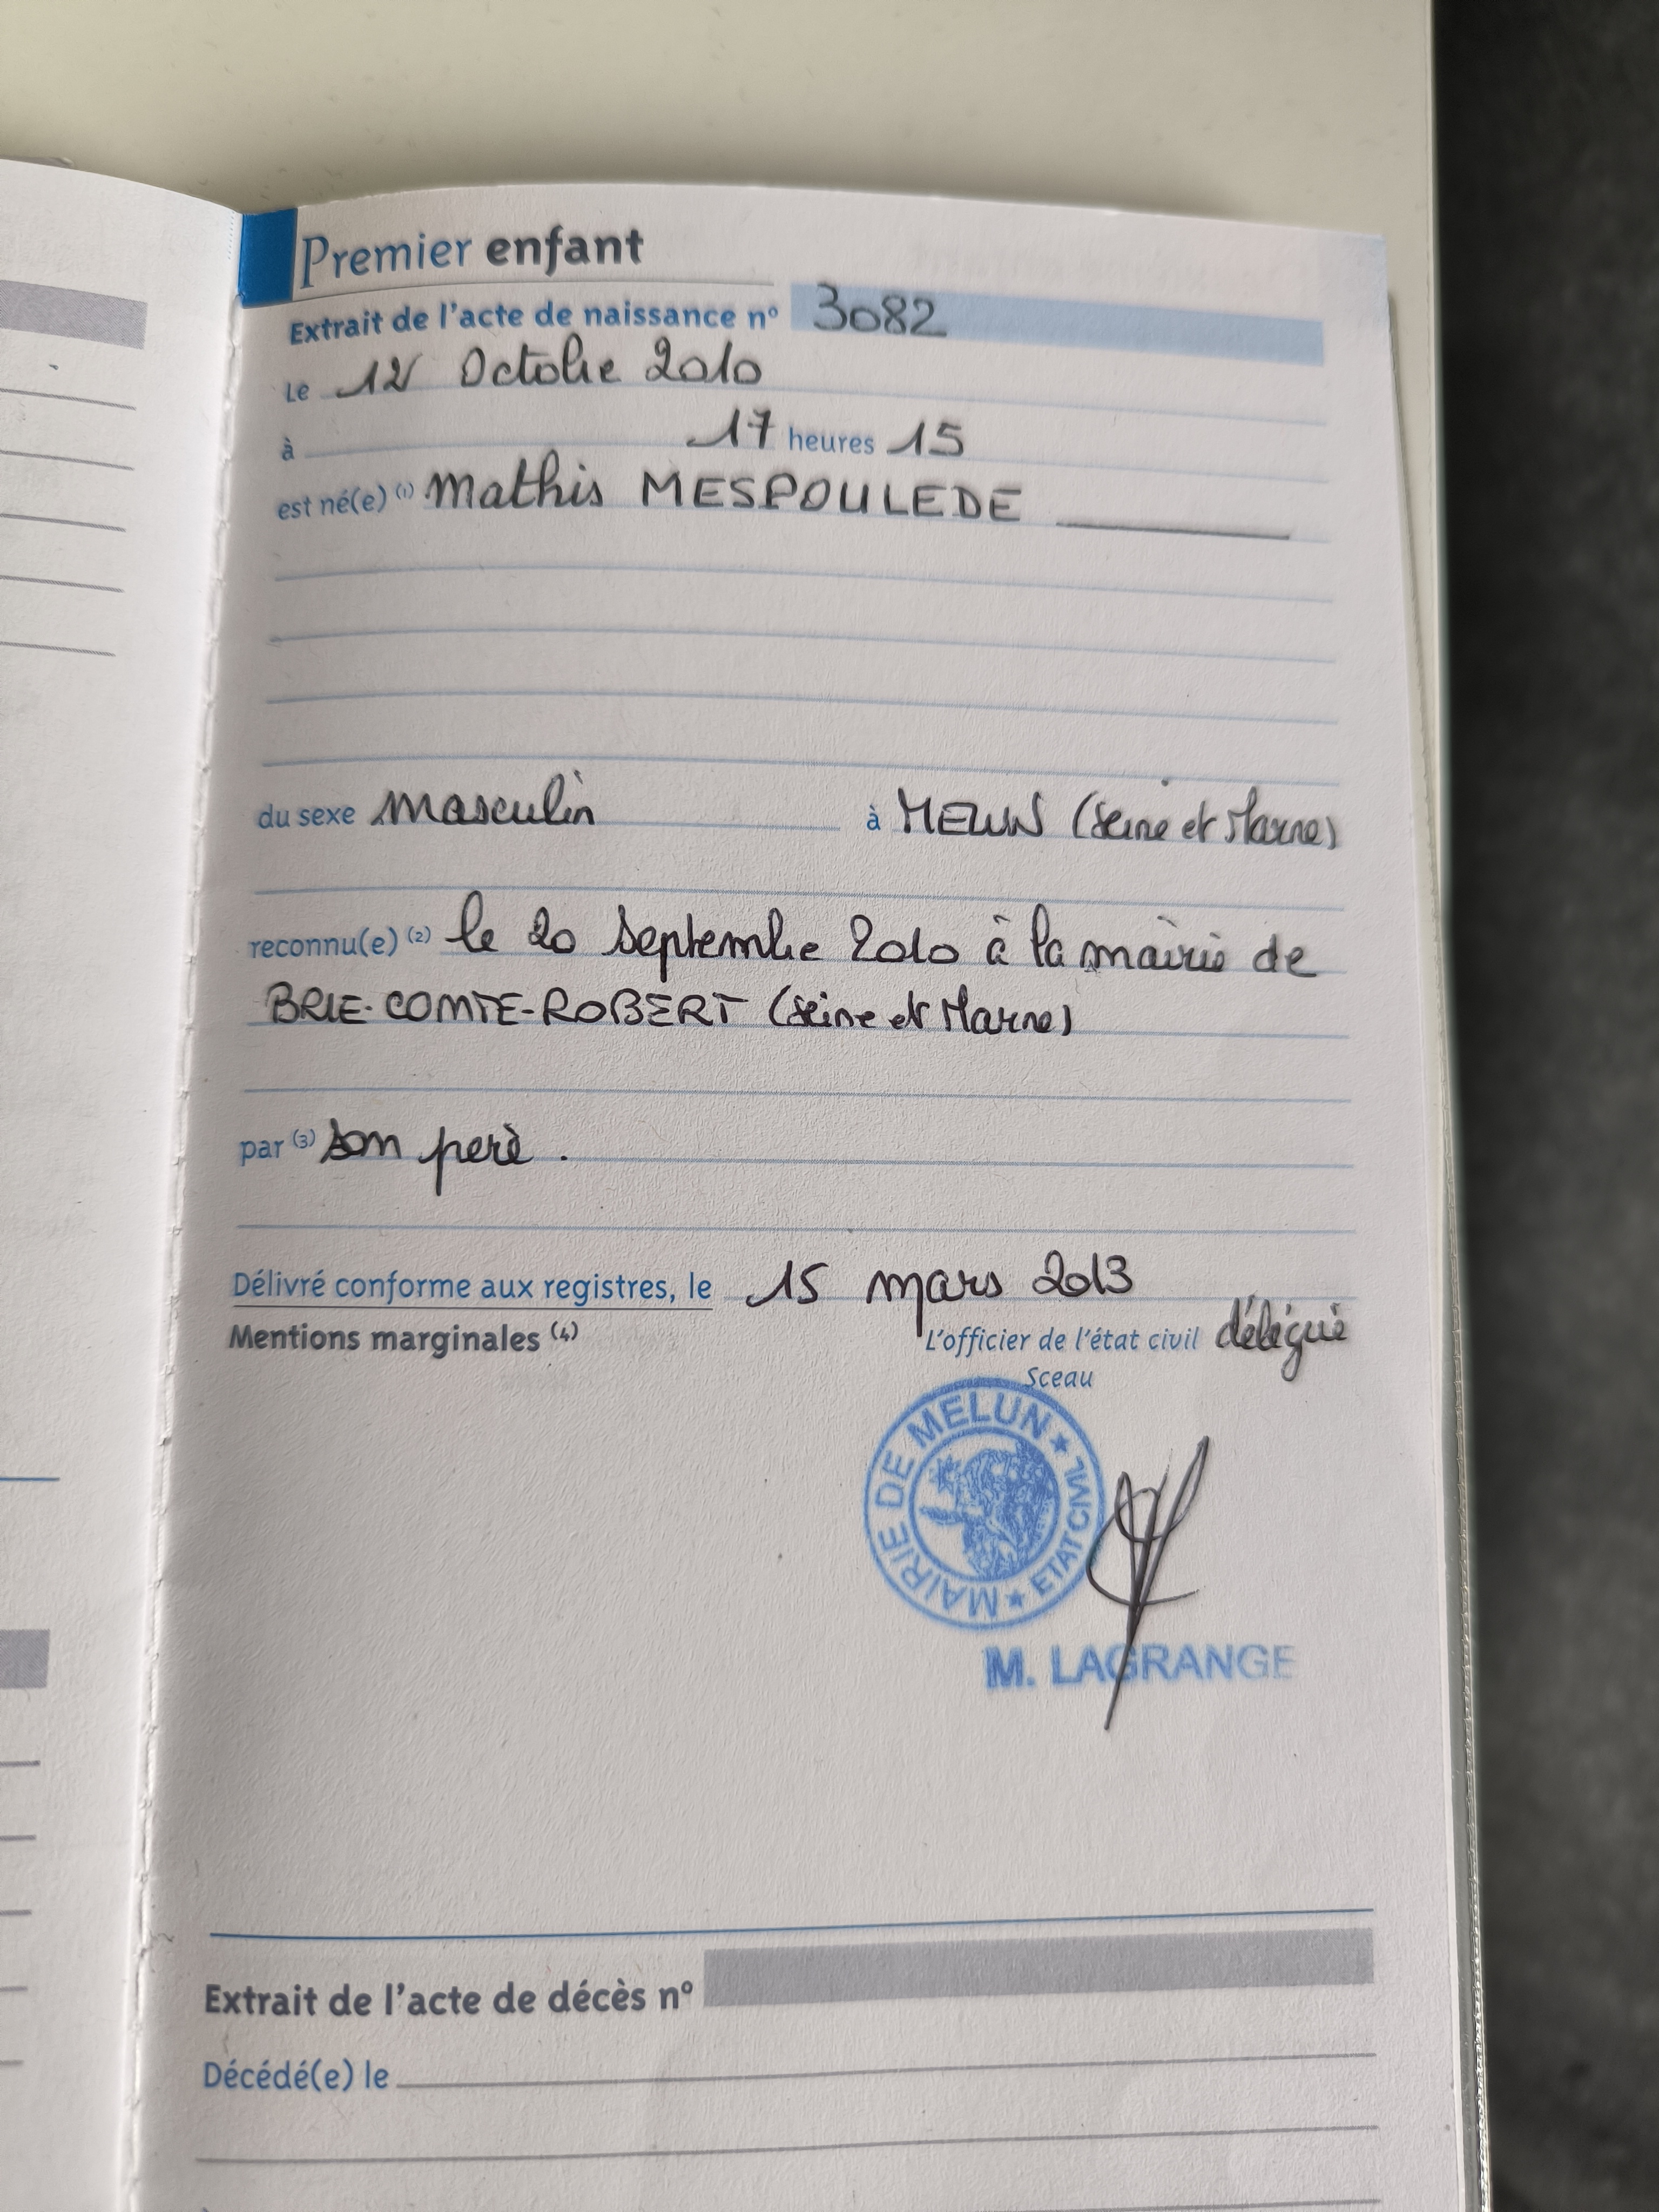 Premier enfant
Extrait de l'acte de naissance n° 3082
Le 12 Octobre 2010
à 17 heures 15
est né(e) (1) Mathis MESPOULEDE
du sexe masculin à MELUN (Seine et Marne)
reconnu(e) (2) le 20 Septembre 2010 à la mairie de
BRIE-COMTE-ROBERT (Seine et Marne)
par (3) son perè.
Délivré conforme aux registres, le 15 mars 2013
Mentions marginales (4) L'officier de l'état civil délégué
Sceau
MAIRIE DE MELUN ★ ETAT CIVIL ★
M. LAGRANGE
Extrait de l'acte de décès n°
Décédé(e) le